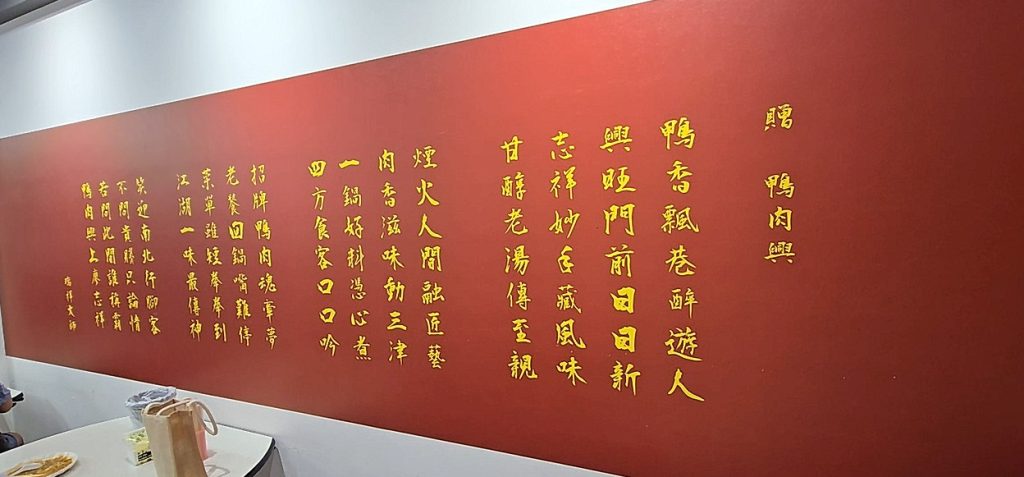 贈　鴨肉興
鴨香飄巷醉遊人
興旺門前日日新
志祥妙手藏風味
甘醇老湯傳至親
煙火人間融匠藝
肉香滋味動三津
一鍋好料憑心煮
四方食客口口吟
招牌鴨肉魂牽夢
老饕回鍋嘴難停
菜單雖短拳拳到
江湖一味最傳神
笑迎南北行腳客
不問貴賤只論情
若問此間誰稱霸
鴨肉興上廖志祥
大師